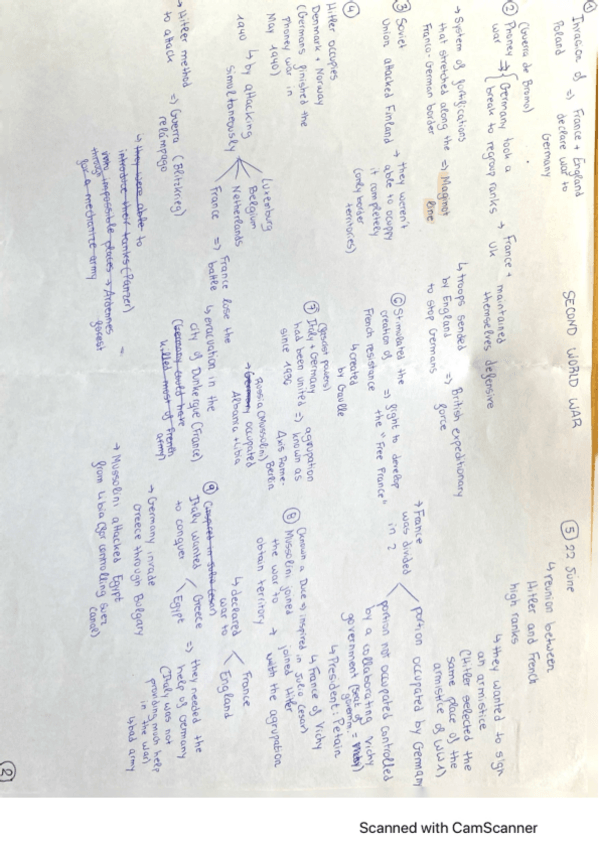 SECOND WORLD WAR
① Invasion of Poland => France + England declare war to Germany
(Guerra de Broma)
② Phoney war => { Germany took a break to regroup ranks
+ France + UK maintained themselves defensive
→ System of fortifications that stretched along the Franco-German border => Maginot line
↳ troops sended by England to stop Germans => British expeditionary force
③ Soviet Union attacked Finland → they weren't able to occupy it completely (only border territories)
④ Hitler occupies Denmark + Norway (Germans finished the Phoney war in May 1940)
1940 ↳ by attacking simultaneously
Luxemburg
Belgium
Netherlands
France => France lose the battle
↳ evacuation in the city of Dunkerque (France)
(Germany could have killed most of French army)
→ Hitler method to attack => Guerra relámpago (Blitzkrieg)
↳ they were able to introduce their tanks (Panzer) through impossible places → Ardennes forest = for a mechanize army
⑤ 22 June
↳ reunion between Hitler and French high ranks
↳ they wanted to sign an armistice (Hitler selected the same place of the armistice of WW1)
→ France was divided in 2
portion occupied by Germany
portion not occupied controlled by a collaborating Vichy government (seat of governm. = Vichy)
↳ President: Petain
↳ France of Vichy
⑥ Stimulated the creation of French resistance => fight to develop the "Free France"
↳ created by Gaulle
⑦ (fascist powers) Italy + Germany had been united since 1936 => agrupation known as Axis Rome-Berlin
Russia (Mussolini)
→ Germany occupied Albania + Libia
(known a Duce => inspired in Julio Cesar)
⑧ Mussolini joined the war to obtain territory + joined Hitler with the agrupation
↳ declared war to
France
England
⑨
Italy wanted to conquer
Greece
Egypt
=> they needed the help of Germany (Italy was not providing much help in the war)
↳ bad army
→ Germany invade Greece through Bulgary
→ Mussolini attacked Egypt from Libia (for controlling Suez canal)
②
Scanned with CamScanner